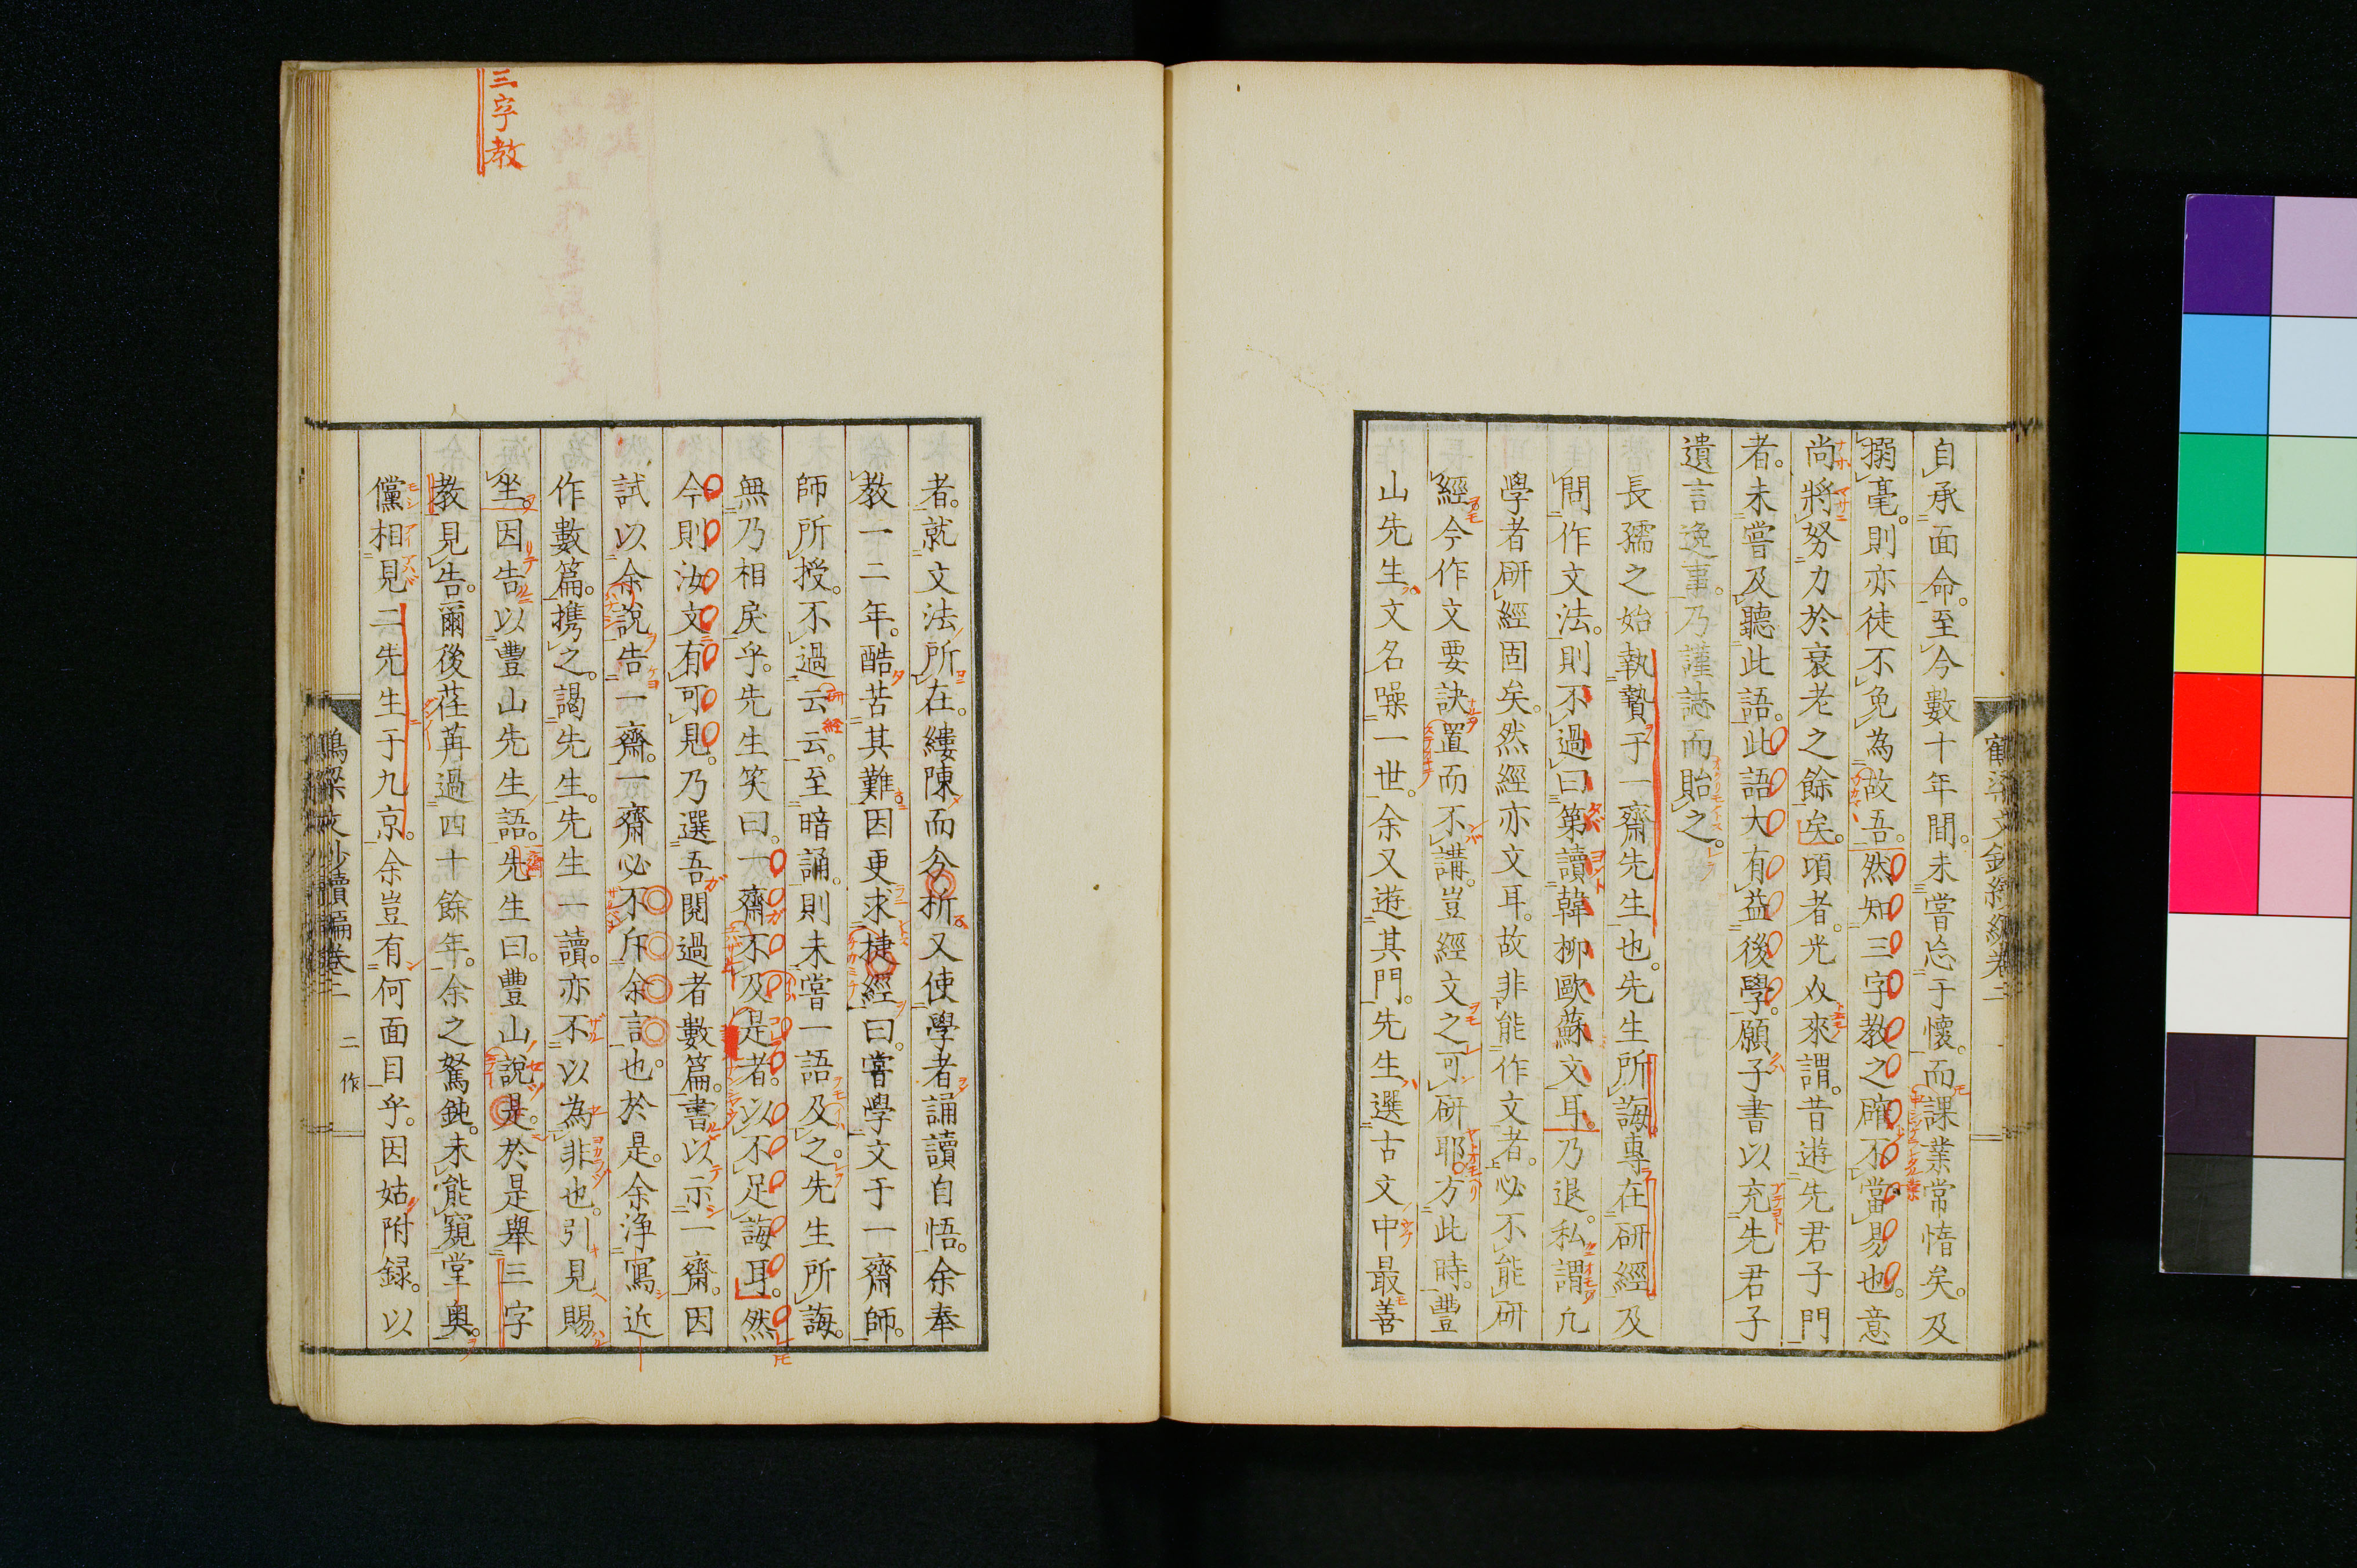 自承面命。至今數十年間。未嘗忘于懷。而課業常惰矣。及
搦毫。則亦徒不免為故吾。然知三字教之確不當易也。意
尚將努力於衰老之餘矣。頃者。光
來謂。昔遊先君子門
者。未嘗及聽此語。此語大有益後學。願子書以充先君子
遺言逸事。乃謹誌而貽之。
長孺之始執贄于一齋先生也。先生所誨專在研經。及
問作文法。則不過曰第讀韓柳歐蘇文耳。乃退。私謂凡
學者研經固矣。然經亦文耳。故非能作文者。必不能研
經。今作文要訣置而不講。豈經文之可研耶。方此時。豐
山先生文名噪一世。余又遊其門。先生選古文中最善
者。就文法所在。縷陳而分析。又使學者誦讀自悟。余奉
教一二年。酷苦其難。因更求捷經。曰。嘗學文于一齋師。
師所授。不過云云。至暗誦。則未嘗一語及之。先生所誨。
無乃相戾乎。先生笑曰。一齋不及是者。以不足誨耳。然
今則汝文有可見。乃選吾閱過者數篇。書以示一齋。因
試以余說告一齋。一齋必不斥余言也。於是。余淨寫近
作數篇。携之。謁先生。先生一讀。亦不以為非也。引見賜
坐。因告以豐山先生語。先生曰。豐山說是。於是舉三字
教見告。爾後荏苒過四十餘年。余之駑鈍。未能窺堂奧。
儻相見二先生于九京。余豈有何面目乎。因姑附録。以
三字教
鶴梁文鈔續編卷二
二
作